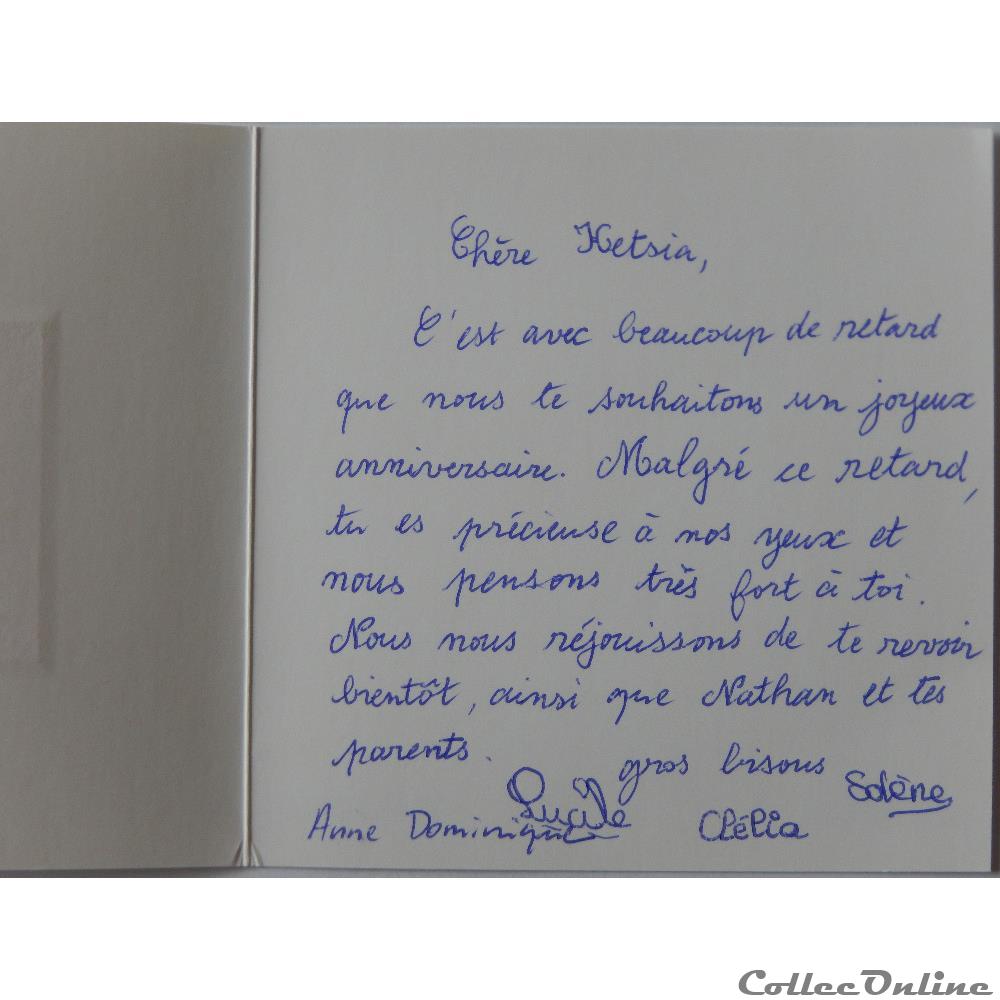 Chère Ketsia,
C'est avec beaucoup de retard
que nous te souhaitons un joyeux
anniversaire. Malgré ce retard,
tu es précieuse à nos yeux et
nous pensons très fort à toi.
Nous nous réjouissons de te revoir
bientôt, ainsi que Nathan et tes
parents. gros bisous
Solène
Lucile
Anne Dominique Clélia
CollecOnline